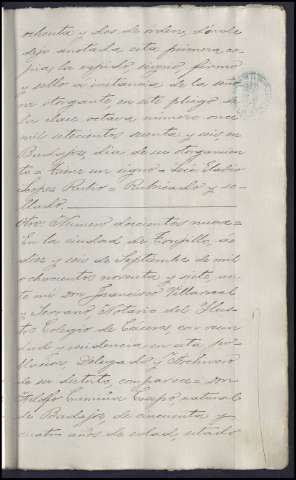 ochenta y dos de orden, donde
dejo anotada esta primera co-
pia, la expido, signo, firmo
y sello a instancia de la seño-
ra otorgante, en este pliego de
la clase octava número once
mil setecientos setenta y seis en
Badajoz, dia de su otorgamien-
to = Tiene un signo = Luis
Lopez Rubio = Rubricado y se-
llado
Otro: Número doscientos nueve =
En la ciudad de Trujillo, á
diez y seis de Septiembre de mil
ochocientos noventa y siete, an-
te mi Don Francisco Villarreal
y Serrano Notario del Ilus-
tre Colegio de Cáceres con vecin-
dad y residencia en esta po-
blación, Delegado y Archivero
de su distrito, comparece = Don
Adolfo natural
de Badajoz, de cincuenta y
cuatro años de edad, estado